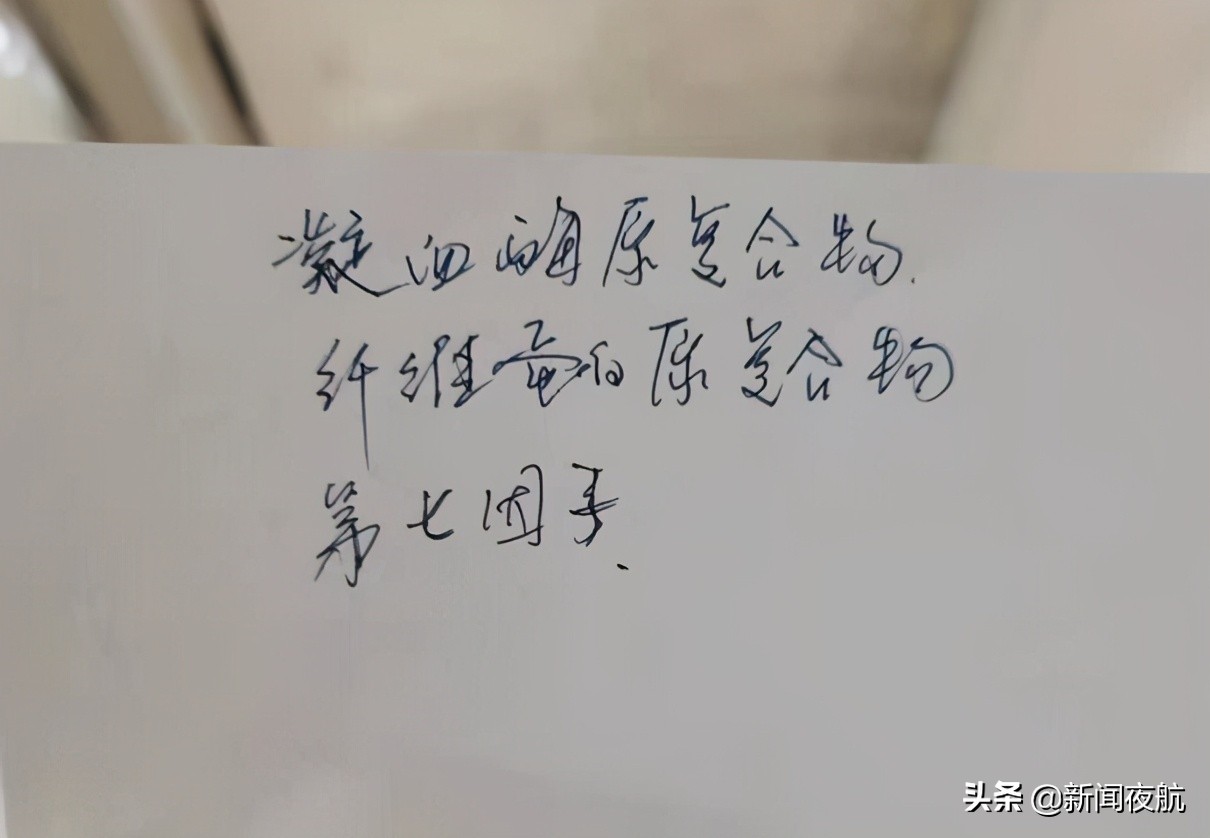 凝血酶原复合物.
纤维蛋白原复合物
第七因子.
头条 @新闻夜航